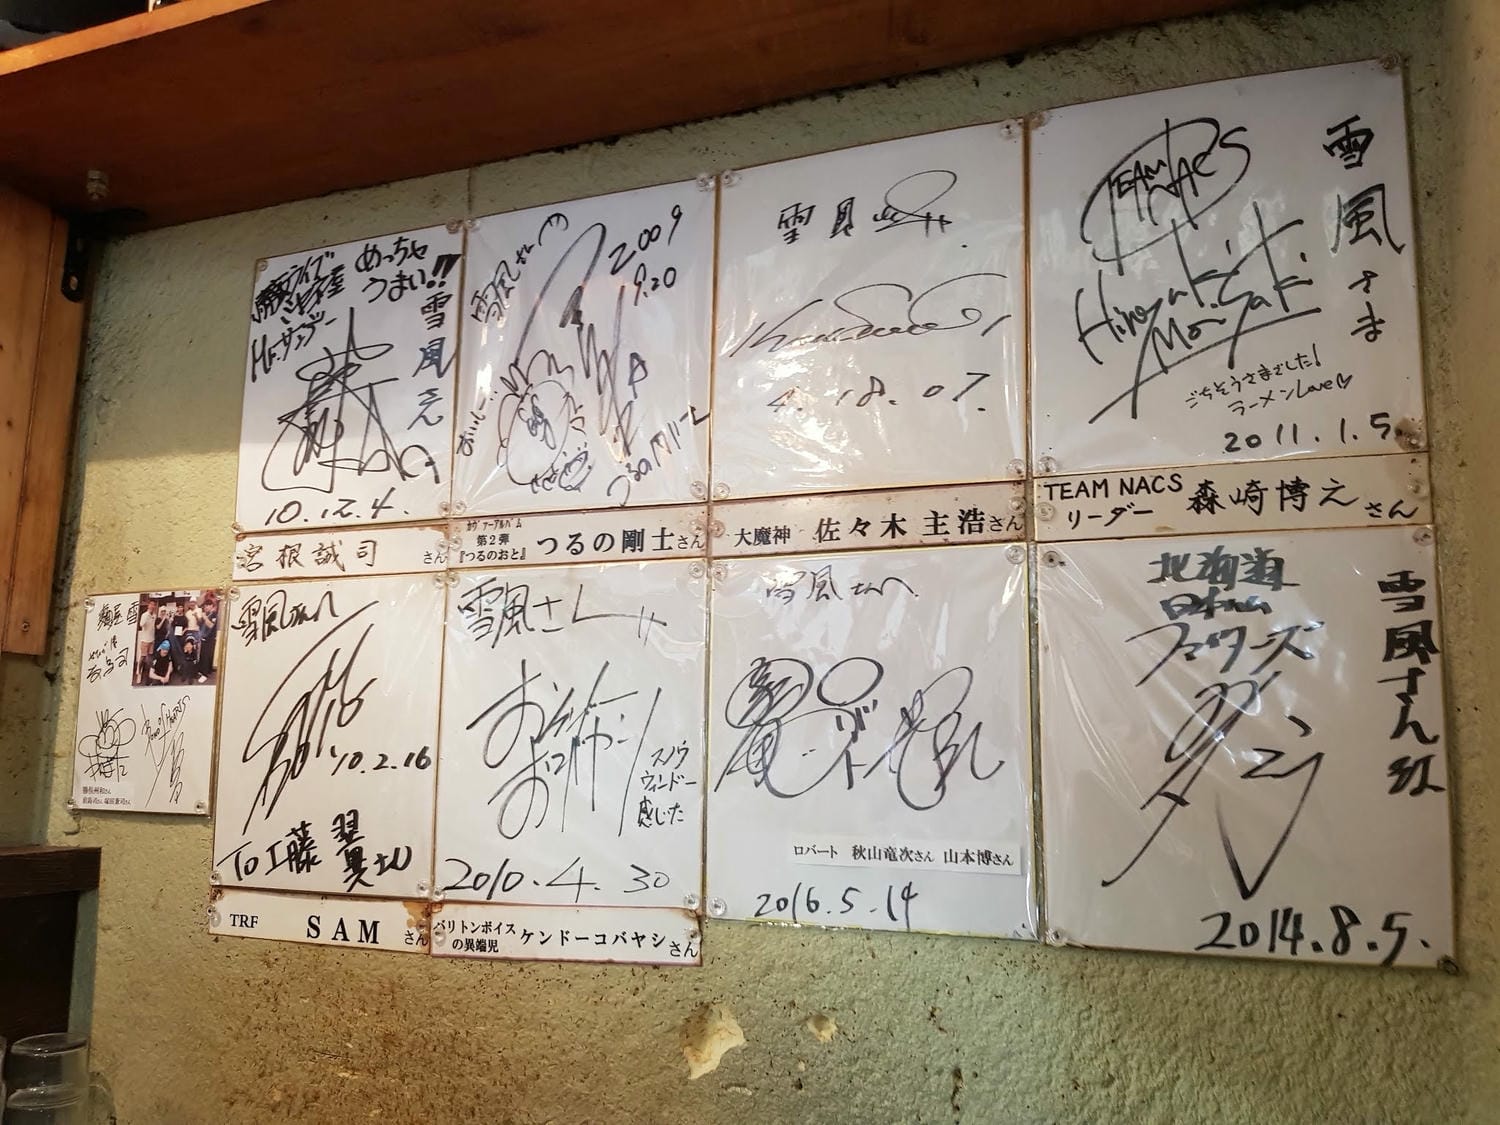 めっちゃ
うまい!!
雪風さん
Mr.サンデー
10.12.4.
宮根誠司さん
雪風さんへ
2009
9.20
おいしー
つるの剛士
カヴァーアルバム
第2弾
『つるのおと』
つるの剛士さん
雪風
4.18.07.
大魔神 佐々木主浩さん
TEAM NACS
雪風さま
Hiroyuki
Morisaki
ごちそうさまでした!
ラーメンLove♡
2011.1.5.
TEAM NACS
リーダー
森崎博之さん
麺屋 雪
雪風さんへ
'10.2.16
To 工藤 翼さん
TRF SAMさん
雪風さん
スノウ
ウィンドー
感じた
2010.4.30
バリトンボイス
の異端児
ケンドーコバヤシさん
雪風さんへ
ロバート 秋山竜次さん 山本博さん
2016.5.14
北海道
日本ハム
ファイターズ
雪風さん江
2014.8.5.